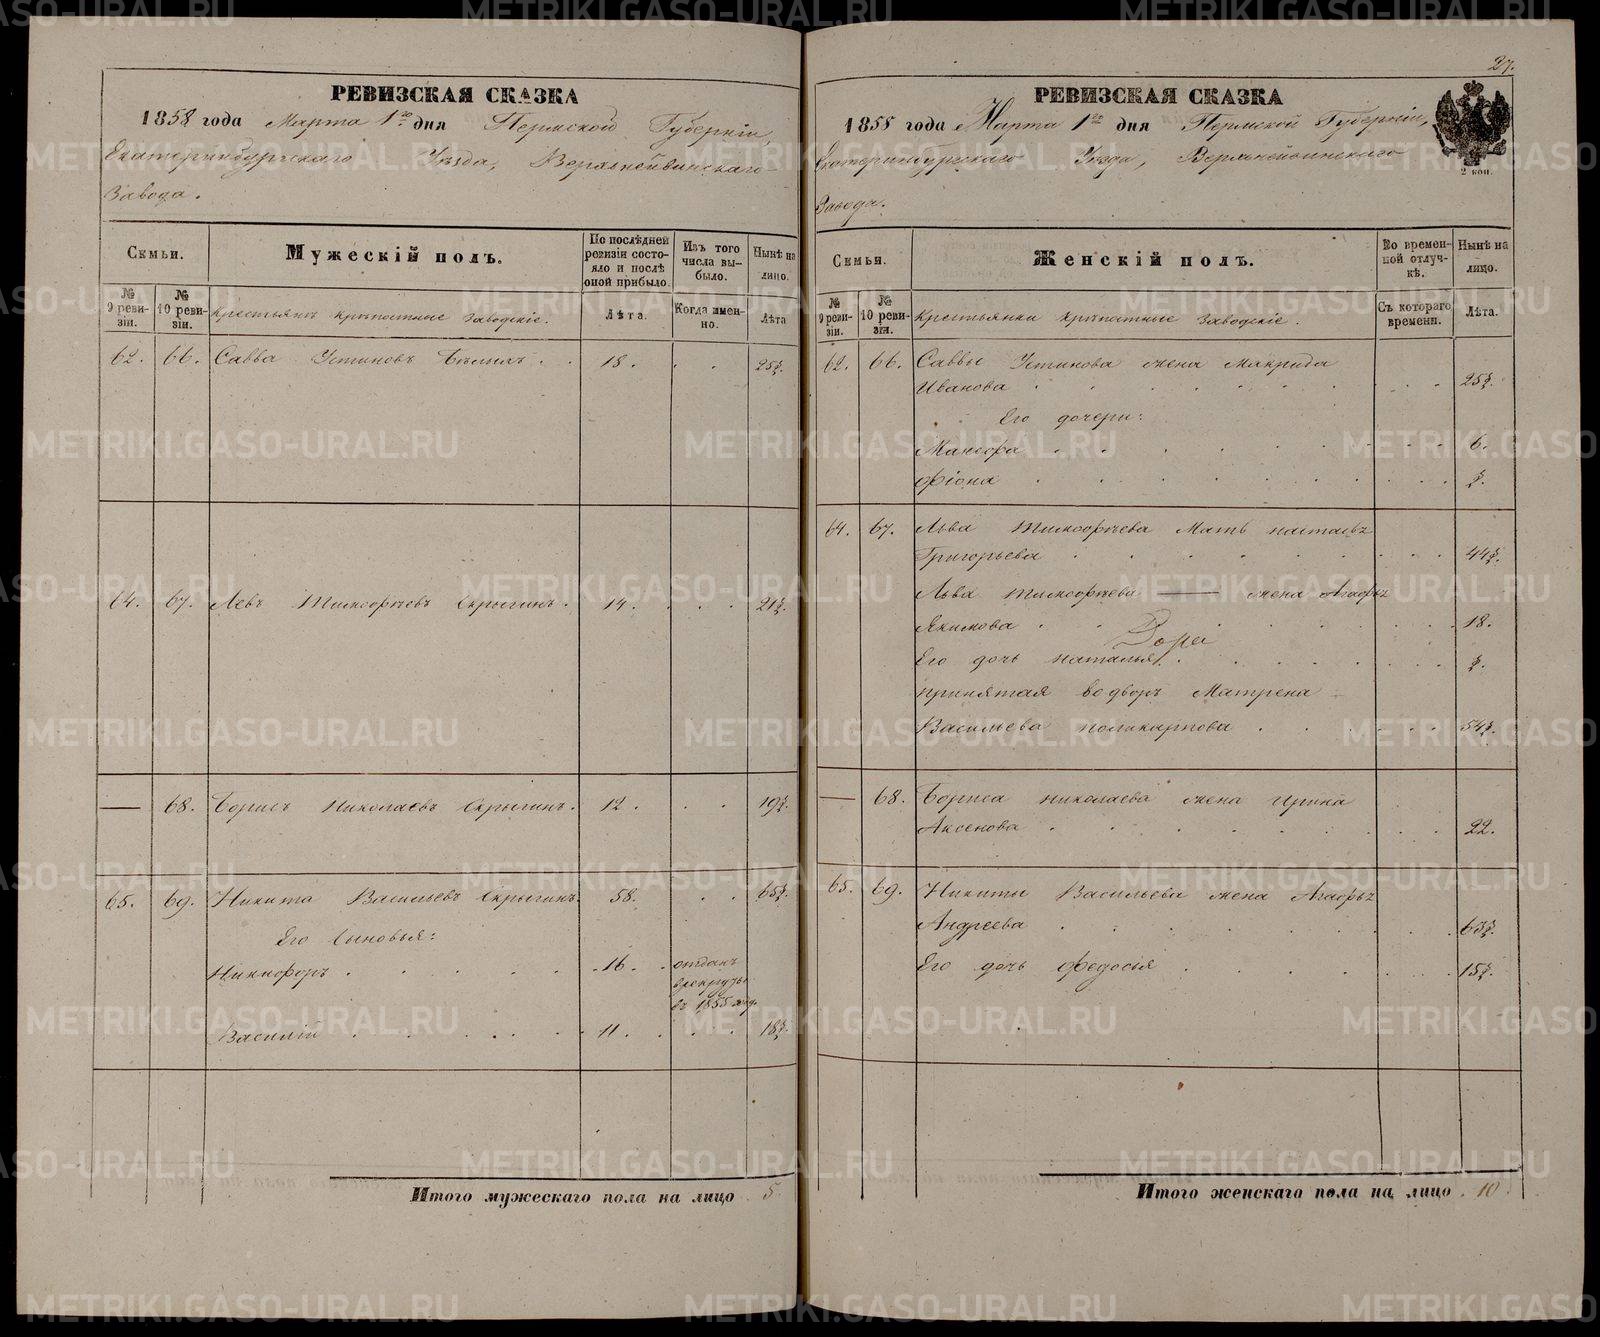 27.
РЕВИЗСКАЯ СКАЗКА
1858 года Марта 1го дня Пермской Губерніи,
Екатеринбургскаго Уѣзда, Верхнейвинскаго
Завода.
Семьи.
Мужескій полъ.
По послѣдней ревизіи состояло и послѣ оной прибыло.
Изъ того числа выбыло.
Нынѣ на лицо.
№ 9 ревизіи.
№ 10 ревизіи.
Крестьянъ крѣпостные заводскіе.
Лѣта.
Когда именно.
Лѣта
62. 66. Савва Устиновъ 18. 25½.
64. 67. Левъ Тимофѣевъ Скрыгинъ. 14. 21½.
— 68. Борисъ Николаевъ Скрыгинъ. 12. 19½.
65. 69. Никита Васильевъ Скрыгинъ. 58. 65½.
Его сыновья:
Никифоръ 16. отданъ
в рекруты
въ 1855 году
Василій 11. 18½.
Итого мужескаго пола на лицо 5.
РЕВИЗСКАЯ СКАЗКА
1858 года Марта 1го дня Пермской Губерніи,
Екатеринбургскаго Уѣзда, Верхнейвинскаго
Завода.
2 коп.
Семьи.
Женскій полъ.
Во временной отлучкѣ.
Нынѣ на лицо.
№ 9 ревизіи.
№ 10 ревизіи.
Крестьянки крѣпостные заводскіе.
Съ котораго времени.
Лѣта.
62. 66. Саввы Устинова жена Макрида
Иванова 25½.
Его дочери:
6.
Фіона ½.
64. 67. Льва Тимофѣева Мать Настасья
Григорьева 44½.
Льва Тимофѣева — жена Агафья
Якимова 18.
Его дочь Наталья ½.
принятая во дворъ Матрена
Васильева Поликарпова 54½.
— 68. Бориса Николаева жена Ирина
Аксенова 22.
65. 69. Никиты Васильева жена Агафья
Андреева 63½.
Его дочь Федосья 15½.
Итого женскаго пола на лицо 10.
METRIKI.GASO-URAL.RU